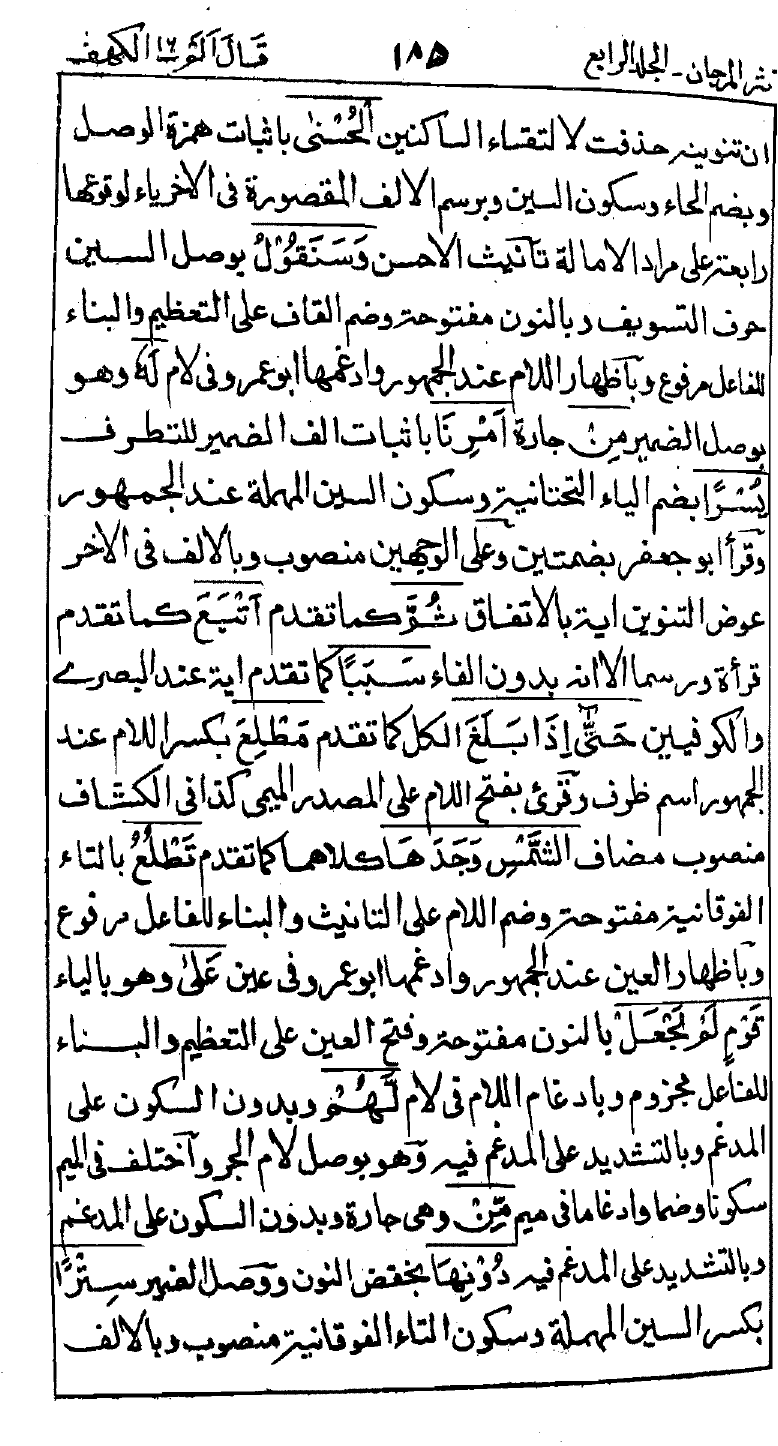 نثر المرجان ـ الجلد الرابع ١٨٥ قَالَ اَلَمْ ١٦ الكهف
ان تنوينه حذفت لالتقاء الساكنين الْحُسْنٰى باثبات همزة الوصل
وبضم الحاء وسكون السين وبرسم الالف المقصورة فى الاخر ياء لوقوعها
رابعة على مراد الامالة تانيث الاحسن وَسَنَقُوْلُ بوصل السين
حرف التسويف وبالنون مفتوحة وضم القاف على التعظيم والبناء
للفاعل مرفوع وباظهار اللام عند الجمهور وادغمها ابو عمرو فى لام لَهٗ وهو
بوصل الضمير مِنْ جارة اَمْرِنَا باثبات الف الضمير للتطرف
يُسْرًا بضم الياء التحتانية وسكون السين المهملة عند الجمهور
وقرأ ابو جعفر بضمتين وعلى الوجهين منصوب وبالالف فى الاخر
عوض التنوين اية بالاتفاق ثُمَّ كما تقدم اَتْبَعَ كما تقدم
قرأة ورسما الا انه بدون الفاء سَبَبًا كما تقدم اية عند البصرے
والكوفيين حَتّٰى اِذَا بَلَغَ الكل كما تقدم مَطْلِعَ بكسر اللام عند
الجمهور اسم ظرف وقرئ بفتح اللام على المصدر الميمى كذا فى الكشاف
منصوب مضاف الشَّمْسِ وَجَدَهَا كلاهما كما تقدم تَطْلُعُ بالتاء
الفوقانية مفتوحة وضم اللام على التانيث والبناء للفاعل مرفوع
وباظهار العين عند الجمهور وادغمها ابو عمرو فى عين عَلٰى وهو بالياء
قَوْمٍ لَّمْ نَجْعَلْ بالنون مفتوحة وفتح العين على التعظيم والبناء
للفاعل مجزوم وبادغام اللام فى لام لَّهُمْ وبدون السكون على
المدغم وبالتشديد على المدغم فيه وهو بوصل لام الجر واختلف فى الميم
سكونا وضما وادغاما فى ميم مِّنْ وهى جارة وبدون السكون على المدغم
وبالتشديد على المدغم فيه دُوْنِهَا بخفض النون ووصل الضمير سِتْرًا
بكسر السين المهملة وسكون التاء الفوقانية منصوب وبالالف